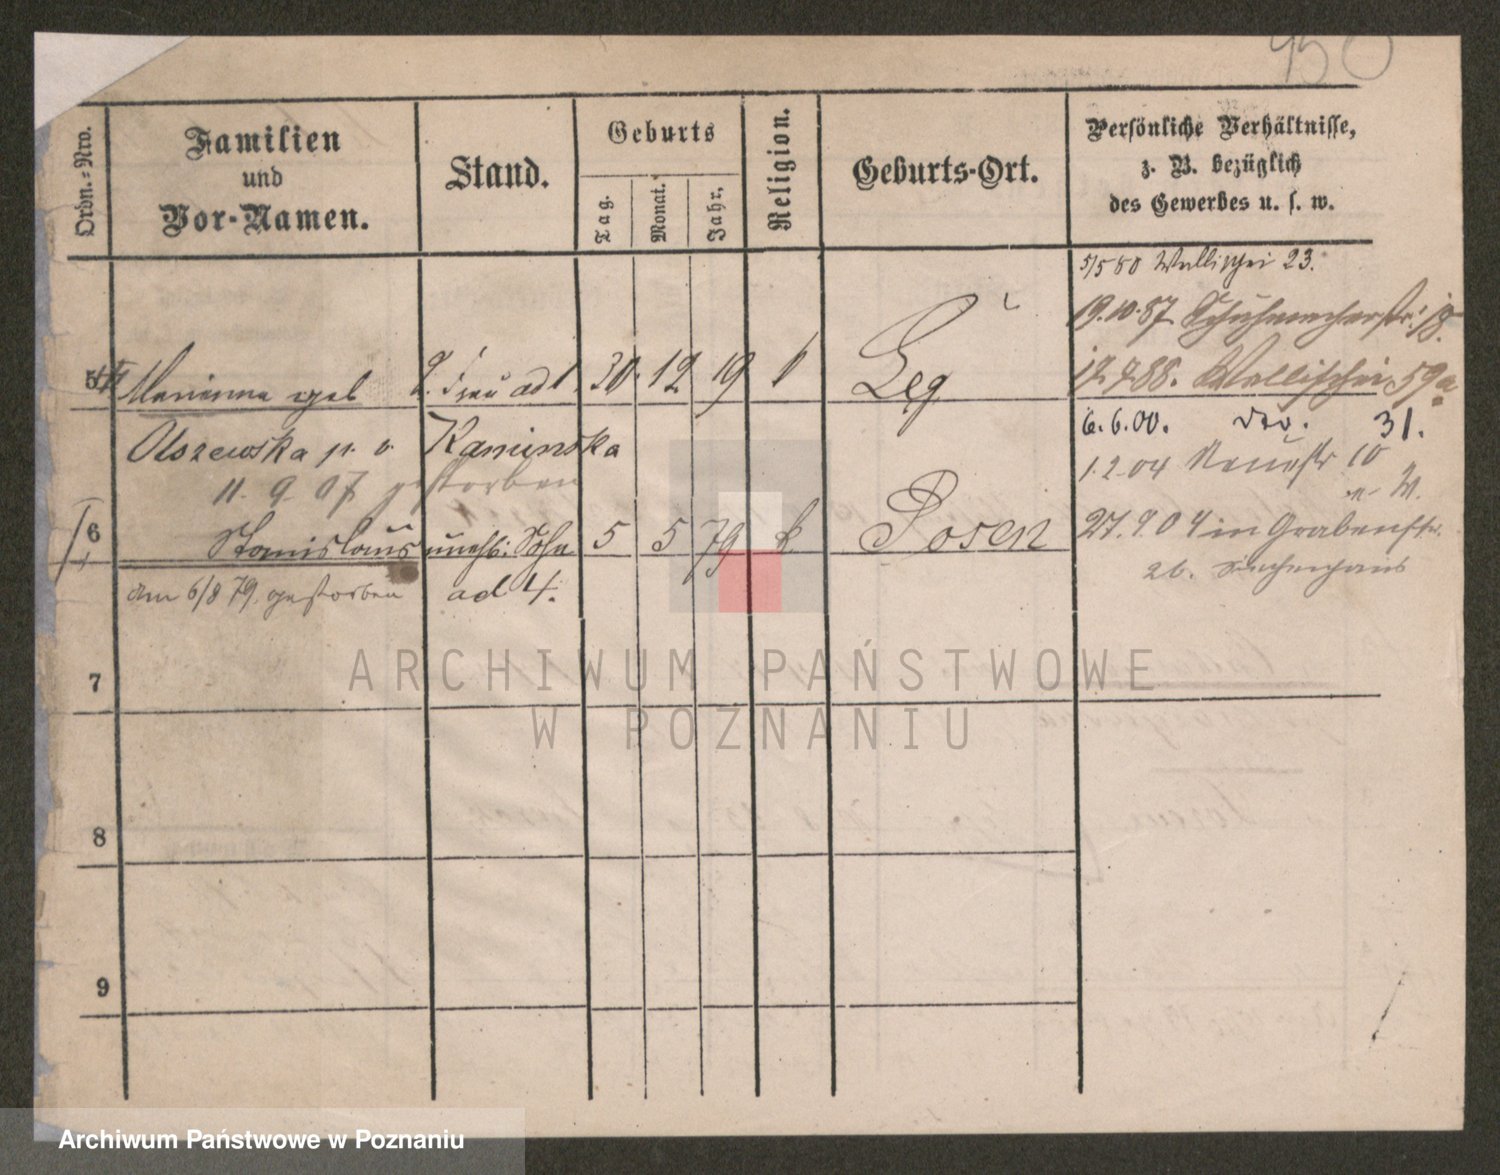 450
Ordn.-Nro.
Familien
und
Vor-Namen.
Stand.
Geburts
Tag.
Monat.
Jahr.
Religion.
Geburts-Ort.
Persönliche Verhältnisse,
z. B. bezüglich
des Gewerbes u. s. w.
5/5 80 Wallischei 23.
19.10.87 Schuhmacherstr. 18.
17.7.88. Wallischei 59a
6.6.00. dto. 31.
1.2.04 Neuestr 10
5 Marianna geb 2. Frau ad 1. 30. 12 19 k Leg
Olszewska p. v. Kaminska
11. 9. 07 gestorben
6 Stanislaus unehl: Sohn 5 5 79 k. Posen
27.9 04 in Grabenstr.
26. Siechenhaus
am 6/8 79. gestorben ad 4.
7
8
9
ARCHIWUM PAŃSTWOWE
W POZNANIU
Archiwum Państwowe w Poznaniu